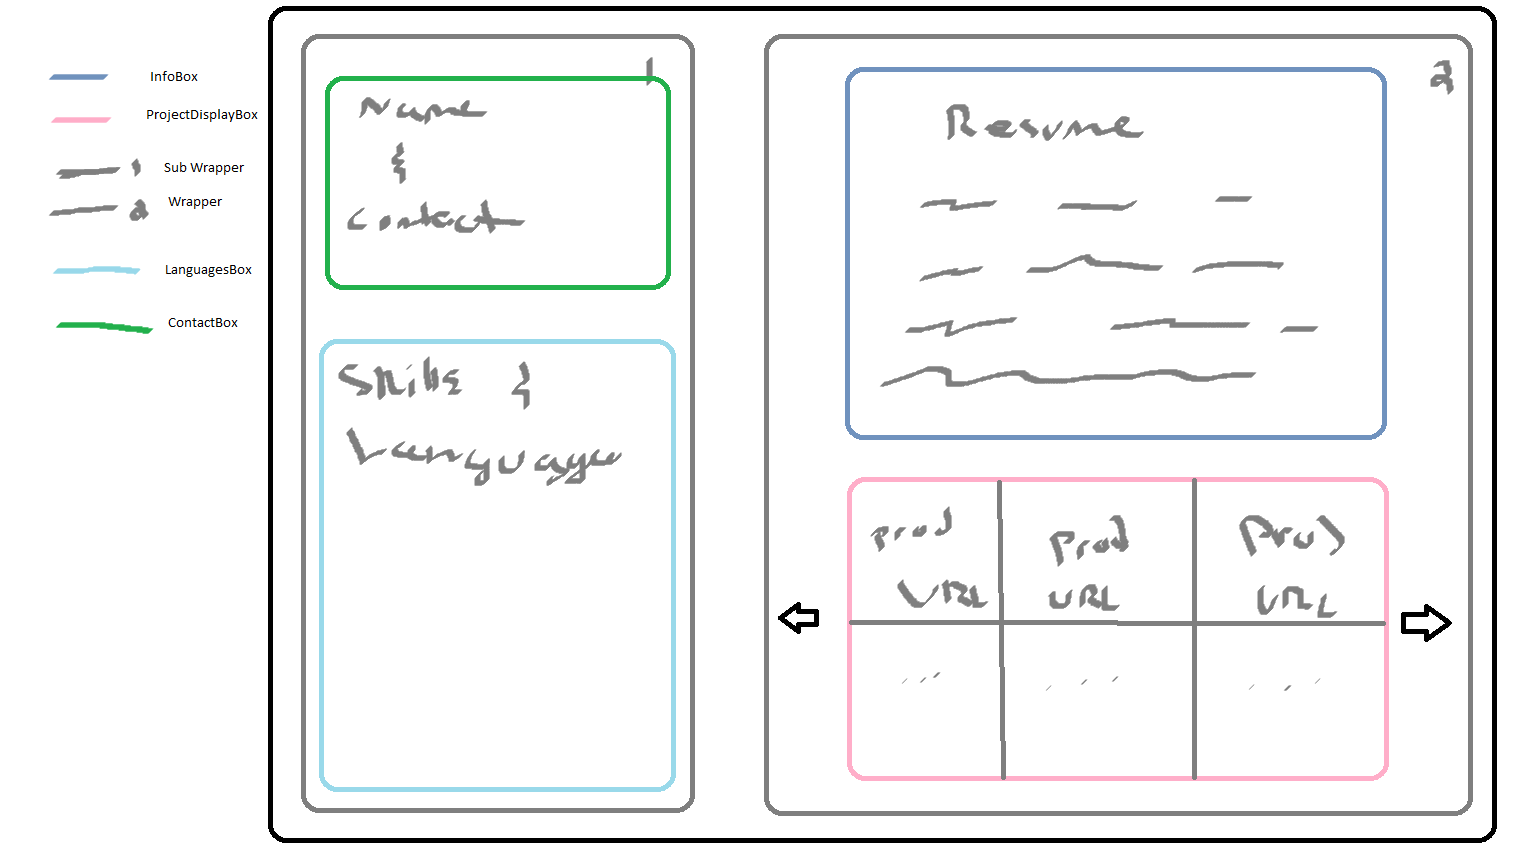 InfoBox
ProjectDisplayBox
1 Sub Wrapper
2 Wrapper
LanguagesBox
ContactBox
1
Name
&
Contact
Skills &
2
Resume
URL
URL
URL